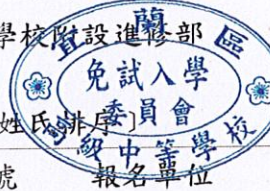 學校附設進修部
宜蘭區
免試入學
委員會
高級中等學校
姓氏排序〕
號 報名單位